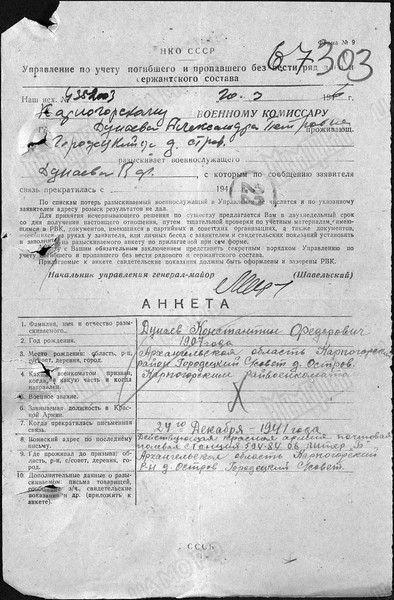 Форма № 9
67303
НКО СССР
Управление по учету погибшего и пропавшего без вести рядового и
сержантского состава
Наш исх. №
194
Карпогорскому ВОЕННОМУ КОМИССАРУ
Гр. Дунаева Александра Петровна проживающ.
Городецкий д. Остров
разыскивает военнослужащего
Дунаева К. Ф. с которым по сообщению заявителя
связь прекратилась с 194
По спискам потерь разыскиваемый военнослужащий в Управлении не числится и по указанному
заявителем адресу розыск результатов не дал.
Для принятия исчерпывающего решения по существу предлагается Вам в двухнедельный срок
со дня получения настоящего отношения, путем тщательной проверки по учетным материалам, имею-
щимся в РВК, документам, имеющимся в райсобесах и сонетах гражданам, а также документов,
имеющихся на руках у заявителя, или личных бесед с заявителем и свидетельских показаний установить
и заполнить на разыскиваемого анкету по прилагаемой при сем форме.
с Вашим обязательным заключением представить секретным порядком Управлению по
учету погибшего и пропавшего без вести рядового и сержантского состава.
Прилагаемые к анкете свидетельские показания должны быть оформлены и заверены РВК.
Начальник управления генерал-майор (Шавельский)
АНКЕТА
1. Фамилия, имя и отчество разы-
скиваемого. Дунаев Константин Федорович
2. Год рождения. 1907 года
3. Место рождения: область, р-н,
с/совет, деревня, город. Архангельская область Карпогорский
район Городецкий с/совет д. Остров.
4. Каким военкоматом призван,
когда, в какую часть и когда
направлен. Карпогорским Райвоенкоматом
5. Военное звание.
6. Занимаемая должность в Крас-
ной Армии.
7. Когда прекратилась письменная
связь. 24го Декабря 1941 года
8. Воинский адрес по последнему
письму. Действующая красная армия почтовая
полевая станция
9. Где проживал до призыва: об-
ласть, р-н, с/совет, деревня, горо-
д. Архангельская область Карпогорский
Р-н д. Остров Городецкий с/совет.
10. Дополнительные данные о разы-
скиваемом: письма товарищей,
сообщения в/ч, свидетельские
показания и др. (приложить к
анкете).
СССР